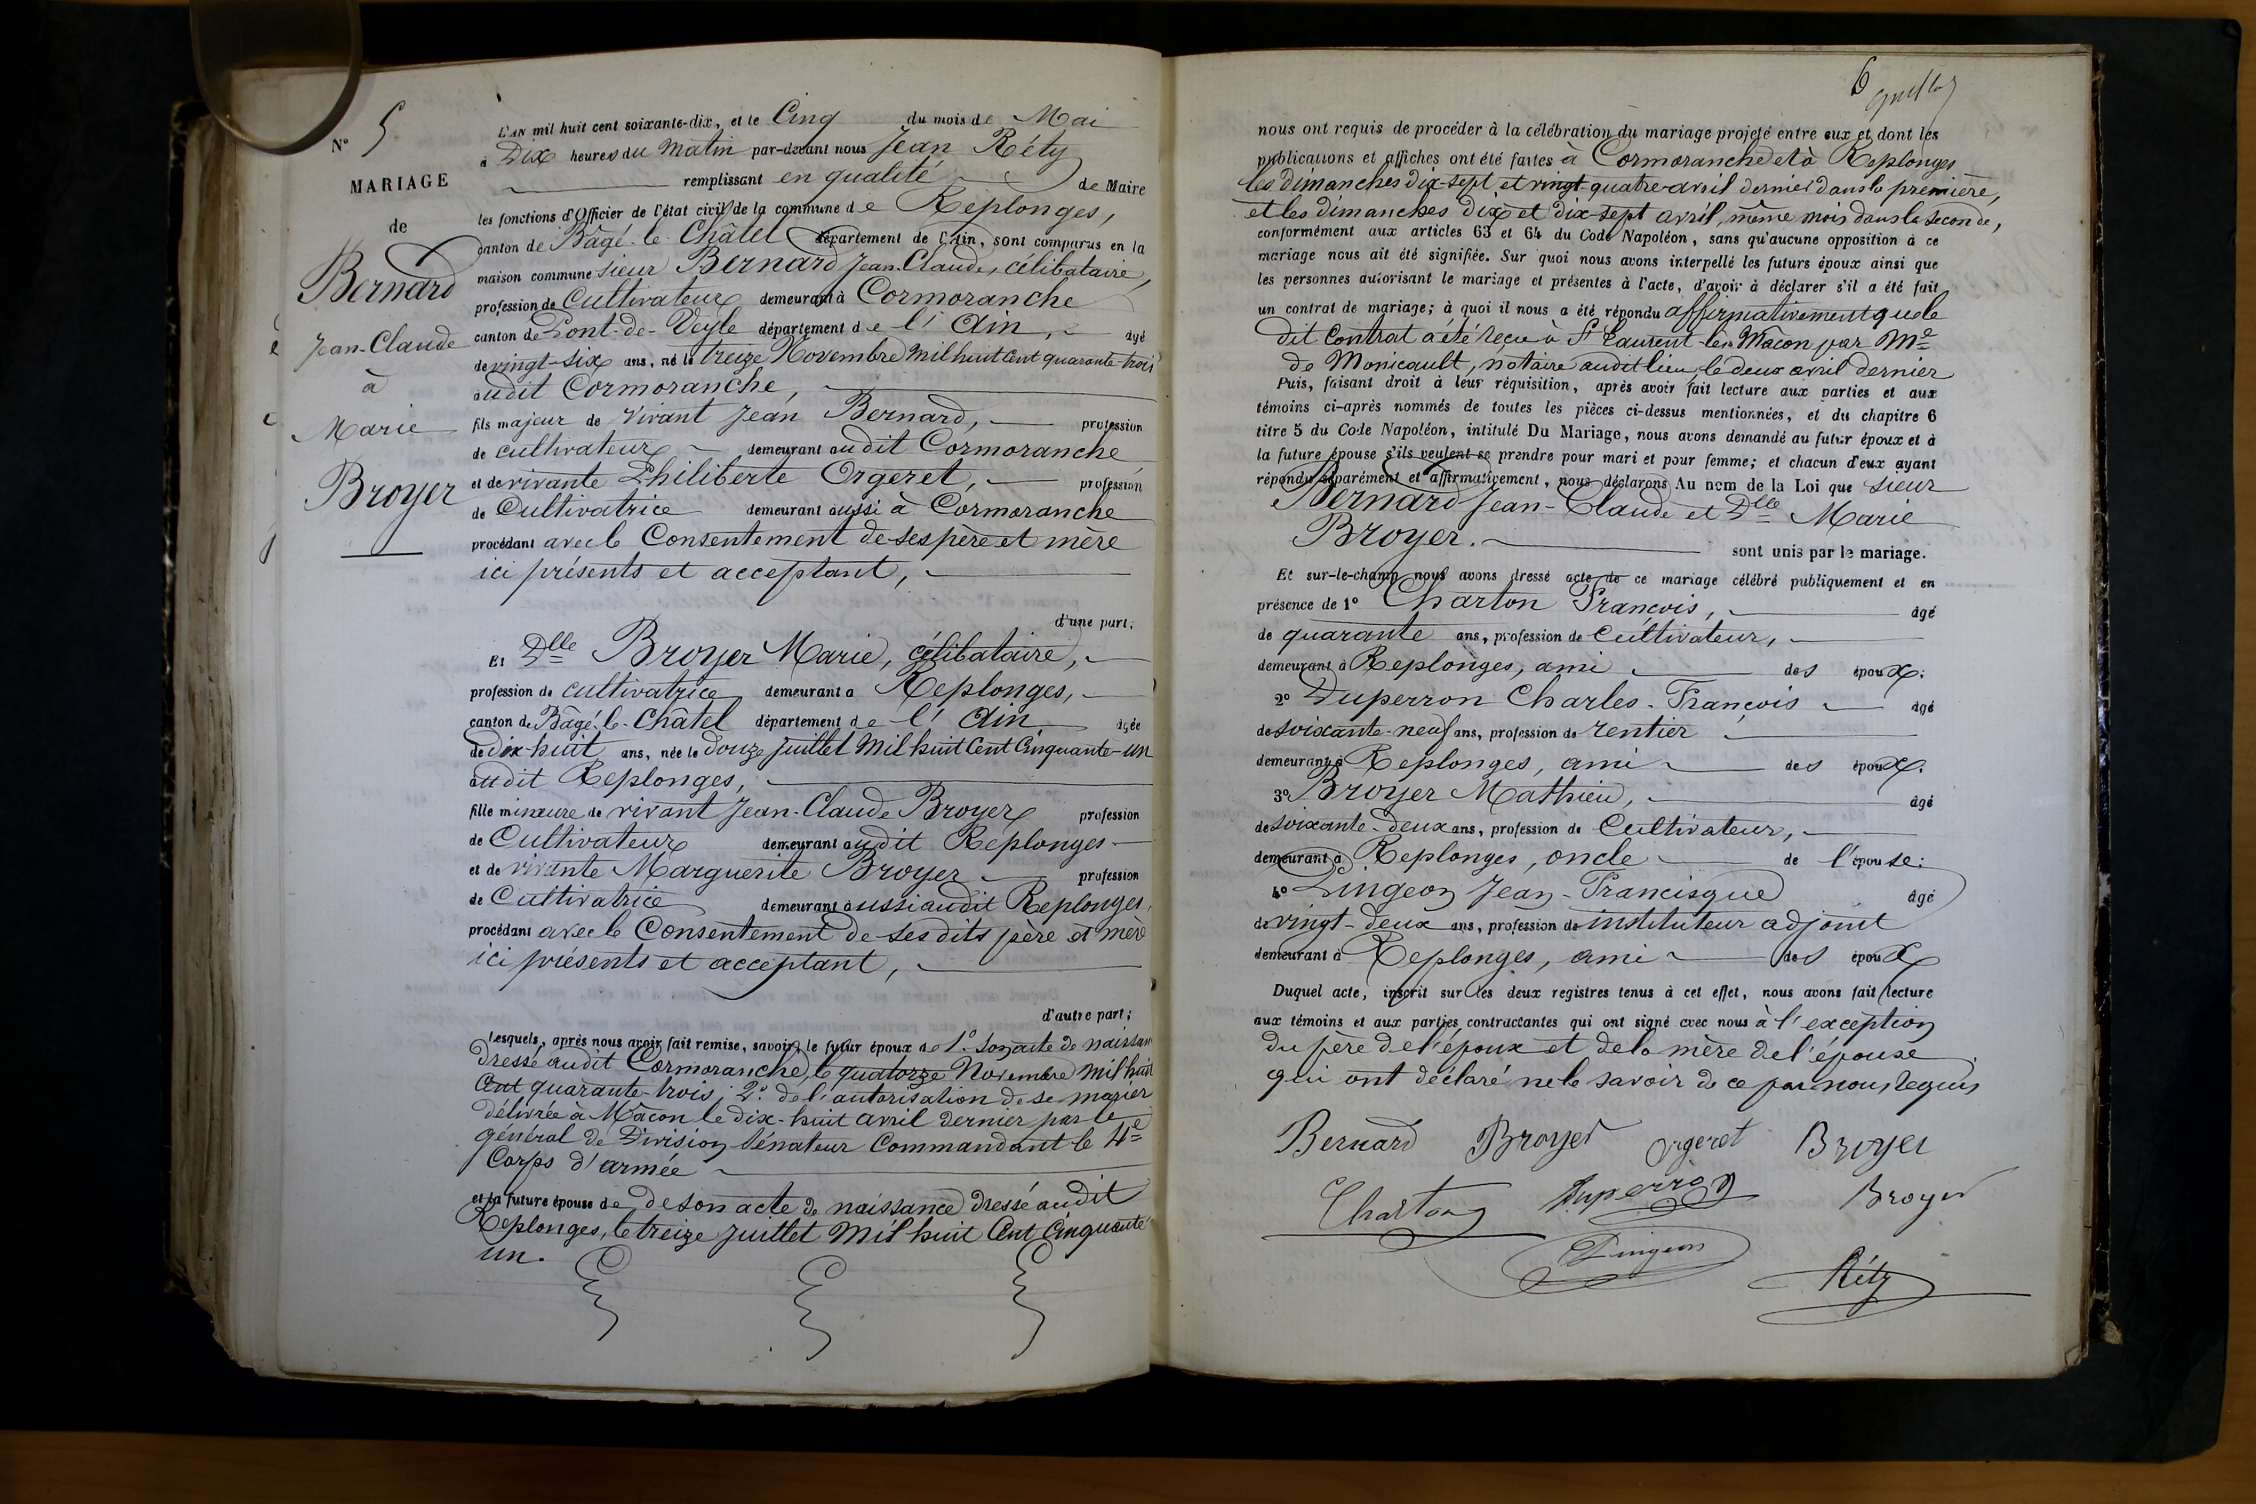 N° 5
MARIAGE
de
Bernard
Jean-Claude
à
Marie
Broyer
L'AN mil huit cent soixante-dix, et le Cinq du mois de Mai
à Dix heures du Matin par-devant nous Jean Réty
remplissant en qualité de Maire
les fonctions d'Officier de l'état civil de la commune de Replonges,
canton de Bâgé-le-Châtel département de l'Ain, sont comparus en la
maison commune sieur Bernard Jean-Claude, célibataire,
profession de Cultivateur demeurant à Cormoranche
canton de Pont-de-Veyle département de l'Ain, âgé
de vingt-six ans, né le treize Novembre Mil huit Cent quarante-trois
audit Cormoranche,
fils majeur de vivant Jean Bernard, profession
de cultivateur demeurant audit Cormoranche
et de vivante Philiberte Orgeret, profession
de Cultivatrice demeurant aussi à Cormoranche
procédant avec le Consentement de ses père et mère
ici présents et acceptant,
d'une part;
Et Dlle Broyer Marie, célibataire,
profession de cultivatrice demeurant à Replonges,
canton de Bâgé-le-Châtel département de l'Ain âgée
de dix-huit ans, née le douze Juillet Mil huit Cent Cinquante-un
audit Replonges,
fille mineure de vivant Jean-Claude Broyer profession
de Cultivateur demeurant audit Replonges
et de vivante Marguerite Broyer profession
de Cultivatrice demeurant aussi audit Replonges,
procédant avec le Consentement de ses dits père et mère
ici présents et acceptant,
d'autre part;
Lesquels, après nous avoir fait remise, savoir, le futur époux de 1° son acte de naissan
dressé audit Cormoranche, le quatorze Novembre Mil huit
Cent quarante-trois; 2° de l'autorisation de se marier
délivrée à Mâcon le dix-huit avril dernier par le
général de Division Sénateur Commandant le 4e
Corps d'armée
et la future épouse de de son acte de naissance dressé audit
Replonges, le treize Juillet Mil huit Cent Cinquante
un.
6
nous ont requis de procéder à la célébration du mariage projeté entre eux et dont les
publications et affiches ont été faites à Cormoranche et à Replonges
les dimanches dix-sept et vingt-quatre avril dernier dans la première,
et les dimanches dix et dix-sept avril, même mois dans la seconde,
conformément aux articles 63 et 64 du Code Napoléon, sans qu'aucune opposition à ce
mariage nous ait été signifiée. Sur quoi nous avons interpellé les futurs époux ainsi que
les personnes autorisant le mariage et présentes à l'acte, d'avoir à déclarer s'il a été fait
un contrat de mariage; à quoi il nous a été répondu affirmativement que le
dit Contrat a été reçu à St Laurent-les-Mâcon par Me
de Monicault, notaire audit lieu, le deux avril dernier
Puis, faisant droit à leur réquisition, après avoir fait lecture aux parties et aux
témoins ci-après nommés de toutes les pièces ci-dessus mentionnées, et du chapitre 6
titre 5 du Code Napoléon, intitulé Du Mariage, nous avons demandé au futur époux et à
la future épouse s'ils veulent se prendre pour mari et pour femme; et chacun d'eux ayant
répondu séparément et affirmativement, nous déclarons Au nom de la Loi que sieur
Bernard Jean-Claude et Dlle Marie
Broyer.
sont unis par le mariage.
Et sur-le-champ nous avons dressé acte de ce mariage célébré publiquement et en
présence de 1° Charton François, âgé
de quarante ans, profession de Cultivateur,
demeurant à Replonges, ami des époux;
2° Duperron Charles-François âgé
de soixante-neuf ans, profession de rentier
demeurant à Replonges, ami des époux;
3° Broyer Mathieu, âgé
de soixante-deux ans, profession de Cultivateur,
demeurant à Replonges, oncle de l'épouse;
4° Pingeon Jean-Francisque âgé
de vingt-deux ans, profession de instituteur adjoint
demeurant à Replonges, ami des époux
Duquel acte, inscrit sur les deux registres tenus à cet effet, nous avons fait lecture
aux témoins et aux parties contractantes qui ont signé avec nous à l'exception
du père de l'époux et de la mère de l'épouse
qui ont déclaré ne le savoir de ce par nous requis
Bernard Broyer Orgeret Broyer
Charton Duperron Broyer
Pingeon
Réty